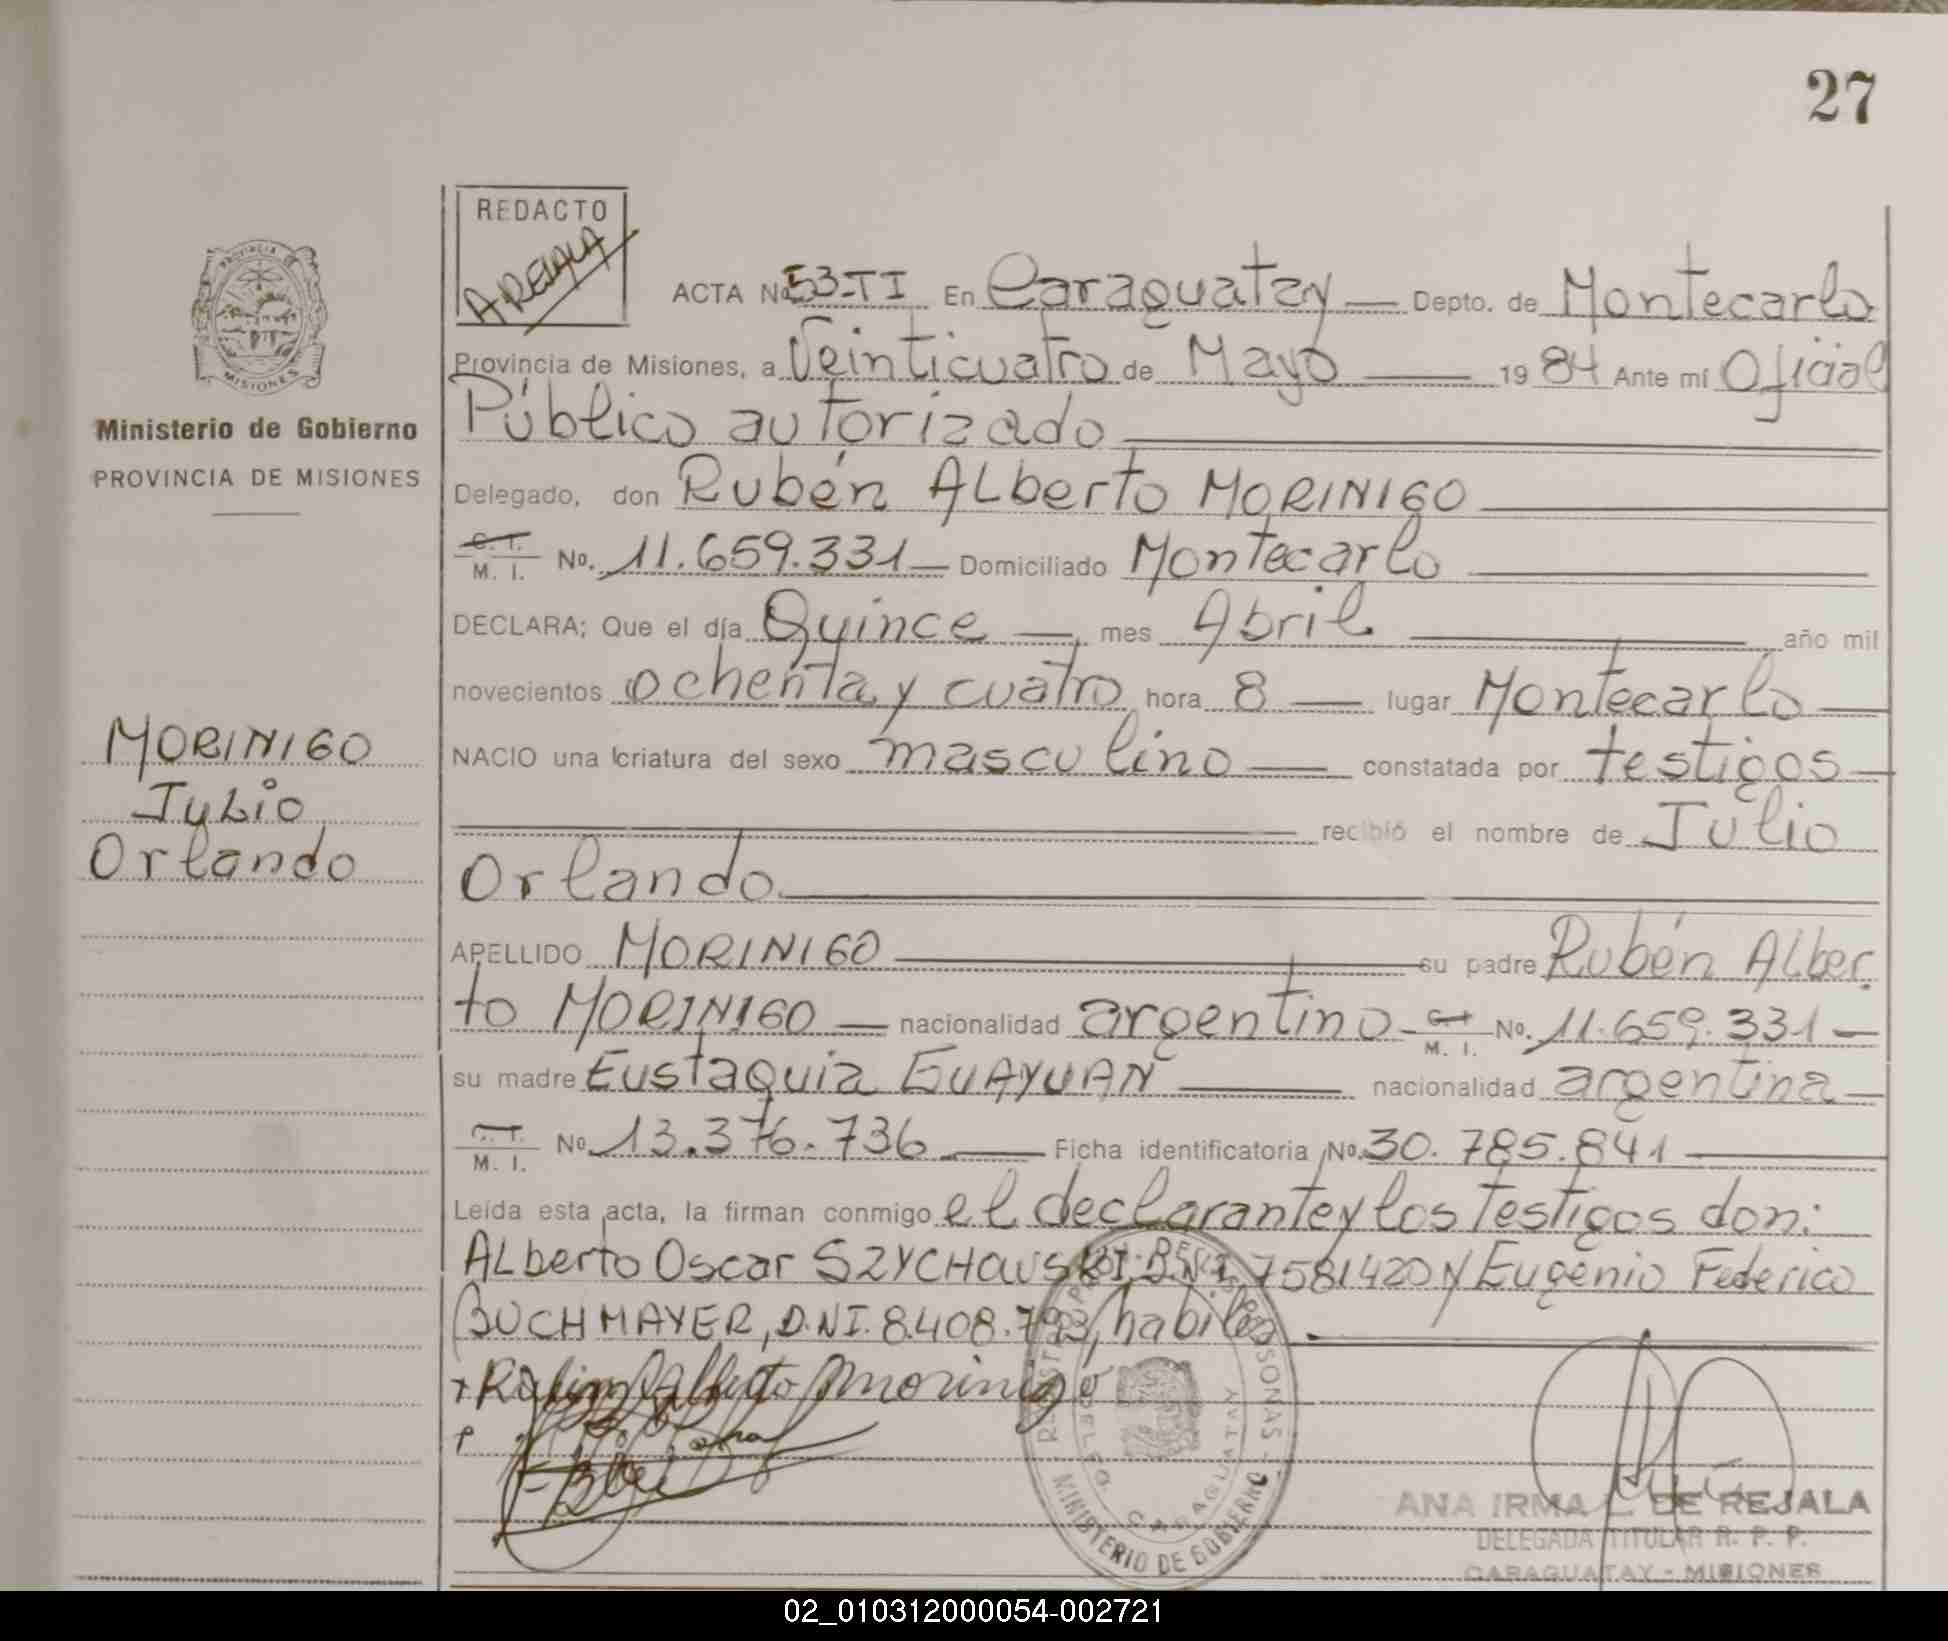 27
REDACTO
AREJALA
ACTA No 53-TI En Caraguatay Depto. de Montecarlo
Provincia de Misiones, a Veinticuatro de Mayo 1984 Ante mí Oficial
Público autorizado
Delegado, don Rubén ALberto MORINIGO
C. I. M. I. No. 11.659.331 Domiciliado Montecarlo
DECLARA; Que el día Quince mes Abril año mil
novecientos ochenta y cuatro hora 8 lugar Montecarlo
NACIO una criatura del sexo masculino constatada por testigos
recibió el nombre de Julio
Orlando
APELLIDO MORINIGO su padre Rubén ALber
to MORINIGO nacionalidad argentino C. I. M. I. No. 11.659.331
su madre Eustaquia GUAYUAN nacionalidad argentina
C. I. M. I. No. 13.376.736 Ficha identificatoria No. 30.785.841
Leída esta acta, la firman conmigo el declarante y los testigos don:
ALberto Oscar SZYCHOWSKI, D.N.I. 7581420 y Eugenio Federico
BUCHMAYER, D.N.I. 8.408.793, habiles.
PROVINCIA DE MISIONES
Ministerio de Gobierno
PROVINCIA DE MISIONES
MORINIGO
Julio
Orlando
Rubén Alberto Morinigo
MINISTERIO DE GOBIERNO
CARAGUATAY
ANA IRMA L. DE REJALA
DELEGADA TITULAR R. P. P.
CARAGUATAY - MISIONES
02_010312000054-002721